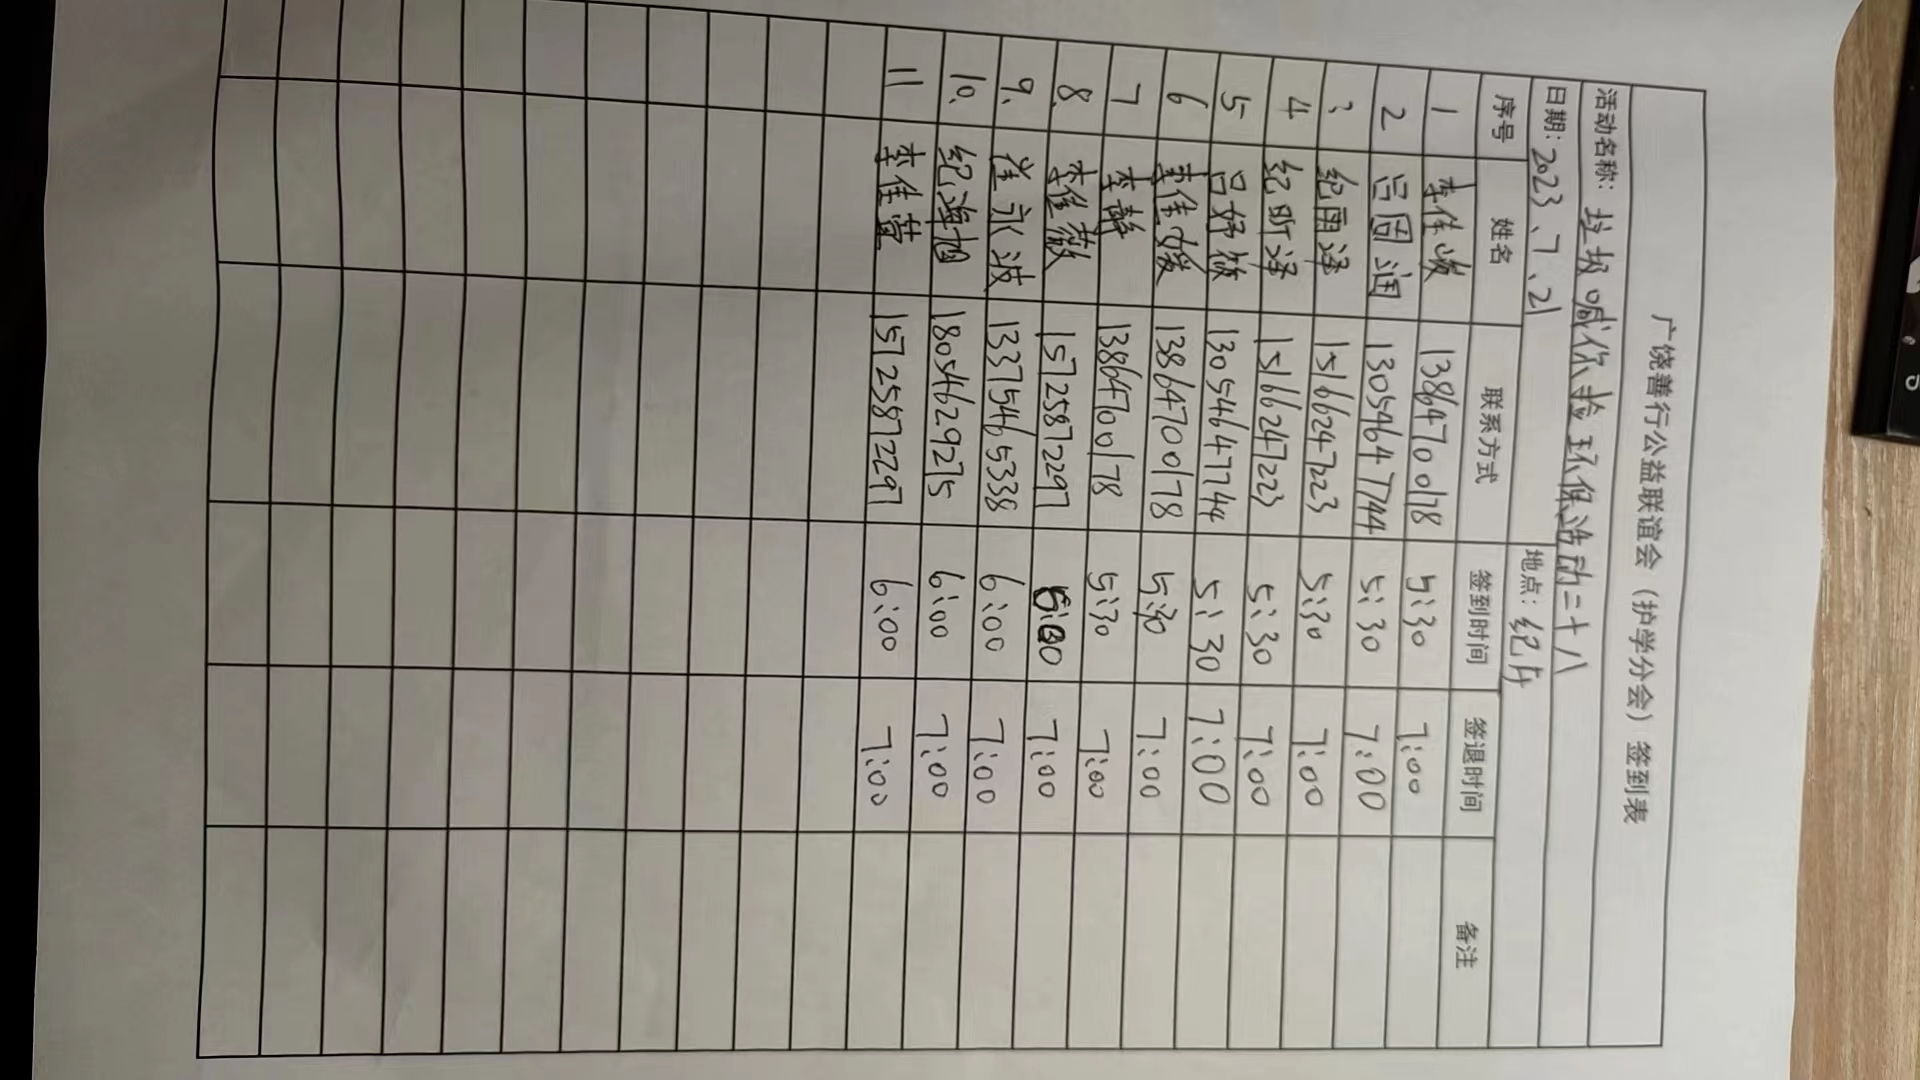 广饶善行公益联谊会（护学分会）签到表
活动名称：垃圾喊你捡环保活动二十八
日期：2023、7、21 地点：纪庄
序号 姓名 联系方式 签到时间 签退时间 备注
1 李佳峻 13864700178 5:30 7:00
2 吕固润 13054647744 5:30 7:00
3 纪雨泽 15166247223 5:30 7:00
4 纪昕泽 15166247223 5:30 7:00
5 吕妤筱 13054647744 5:30 7:00
6 李佳媛 13864700178 5:30 7:00
7 李静 13864700178 5:30 7:00
8. 李佳薇 15725872297 6:00 7:00
9. 崔永波 13375465338 6:00 7:00
10. 纪海旭 18054629275 6:00 7:00
11 李佳萱 15725872297 6:00 7:00